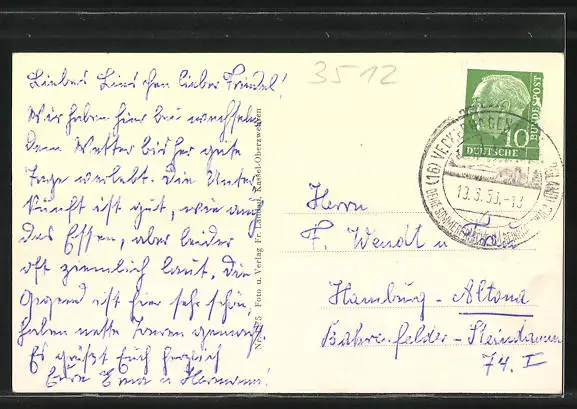 Liebes Lieschen lieber Friedel!
Wir haben hier bei wechseln-
dem Wetter bisher gute
Tage verlebt. Die Unter-
kunft ist gut, wie auch
das Essen, aber leider
oft ziemlich laut. Die
Gegend ist hier sehr schön,
haben nette Touren gemacht.
Es grüßt Euch herzlich
Eure Erna u Hermann!
3512
Foto u. Verlag Fr. Kassel-Oberzwehren
DEUTSCHE
BUNDESPOST
10
(16) VECKERHAGEN
13.6.55.-13
Herrn
F. Wendt u Frau
Hamburg-Altona
Bahrenfelder-Steindamm
74. I